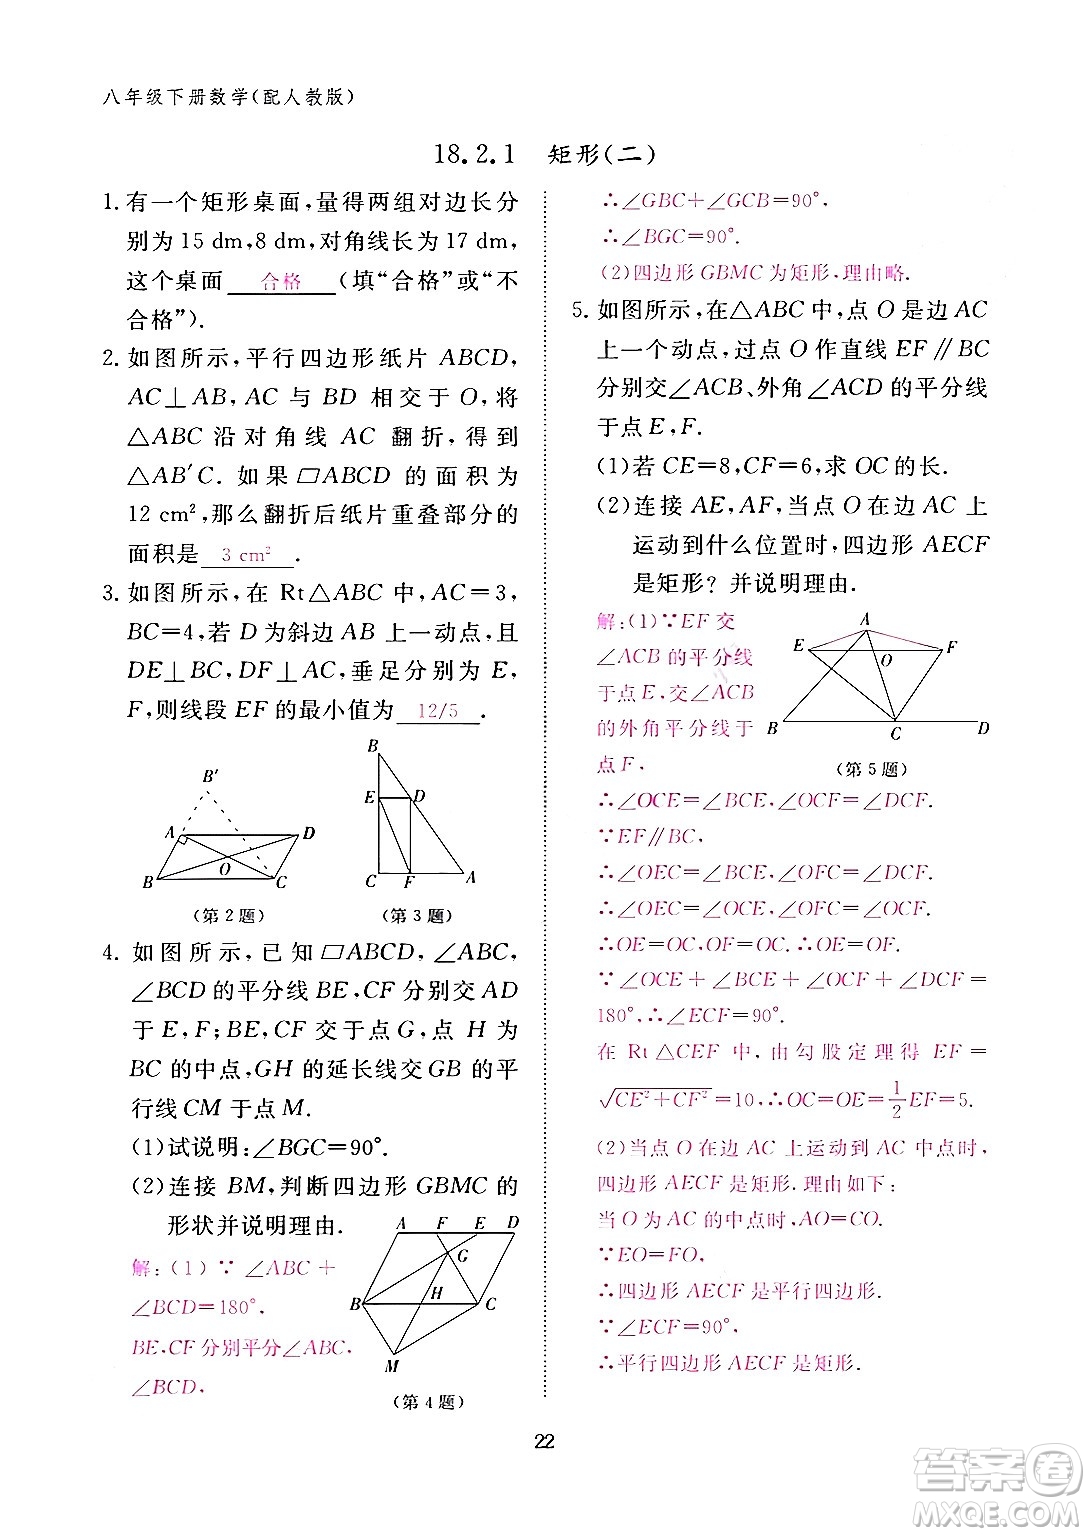 八年级下册数学(配人教版)
18.2.1 矩形(二)
1. 有一个矩形桌面,量得两组对边长分
别为15 dm,8 dm,对角线长为17 dm,
这个桌面 合格 (填“合格”或“不
合格”).
2. 如图所示,平行四边形纸片ABCD,
AC⊥AB,AC与BD相交于O,将
△ABC沿对角线AC翻折,得到
△AB′C. 如果▱ABCD的面积为
12 cm²,那么翻折后纸片重叠部分的
面积是 3 cm² .
3. 如图所示,在Rt△ABC中,AC=3,
BC=4,若D为斜边AB上一动点,且
DE⊥BC,DF⊥AC,垂足分别为E,
F,则线段EF的最小值为 12/5 .
B′
A
D
O
B
C
(第2题)
B
E
D
C
F
A
(第3题)
4. 如图所示,已知▱ABCD,∠ABC,
∠BCD的平分线BE,CF分别交AD
于E,F;BE,CF交于点G,点H为
BC的中点,GH的延长线交GB的平
行线CM于点M.
(1)试说明:∠BGC=90°.
(2)连接BM,判断四边形GBMC的
形状并说明理由.
解:(1)∵∠ABC+
∠BCD=180°.
BE,CF分别平分∠ABC,
∠BCD,
A F E D
G
B H C
M
(第4题)
∴∠GBC+∠GCB=90°,
∴∠BGC=90°.
(2)四边形GBMC为矩形,理由略.
5. 如图所示,在△ABC中,点O是边AC
上一个动点,过点O作直线EF∥BC
分别交∠ACB、外角∠ACD的平分线
于点E,F.
(1)若CE=8,CF=6,求OC的长.
(2)连接AE,AF,当点O在边AC上
运动到什么位置时,四边形AECF
是矩形?并说明理由.
解:(1)∵EF交
∠ACB的平分线
于点E,交∠ACB
的外角平分线于
点F,
A
E
O
F
B
C
D
(第5题)
∴∠OCE=∠BCE,∠OCF=∠DCF.
∵EF∥BC,
∴∠OEC=∠BCE,∠OFC=∠DCF.
∴∠OEC=∠OCE,∠OFC=∠OCF.
∴OE=OC,OF=OC.∴OE=OF.
∵∠OCE+∠BCE+∠OCF+∠DCF=
180°,∴∠ECF=90°.
在Rt△CEF中,由勾股定理得EF=
√(CE²+CF²)=10,∴OC=OE=1/2EF=5.
(2)当点O在边AC上运动到AC中点时,
四边形AECF是矩形.理由如下:
当O为AC的中点时,AO=CO.
∵EO=FO,
∴四边形AECF是平行四边形.
∵∠ECF=90°,
∴平行四边形AECF是矩形.
22
答案圈
MXQE.COM